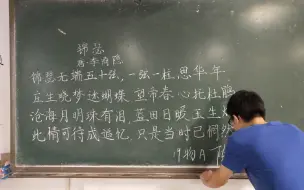 锦瑟
唐·李商隐
锦瑟无端五十弦,一弦一柱思华年
庄生晓梦迷明珠 望帝春心托杜鹃
沧海月明珠有泪,蓝田日暖玉生
此情可待成追忆 只是当时已惘然
19物A